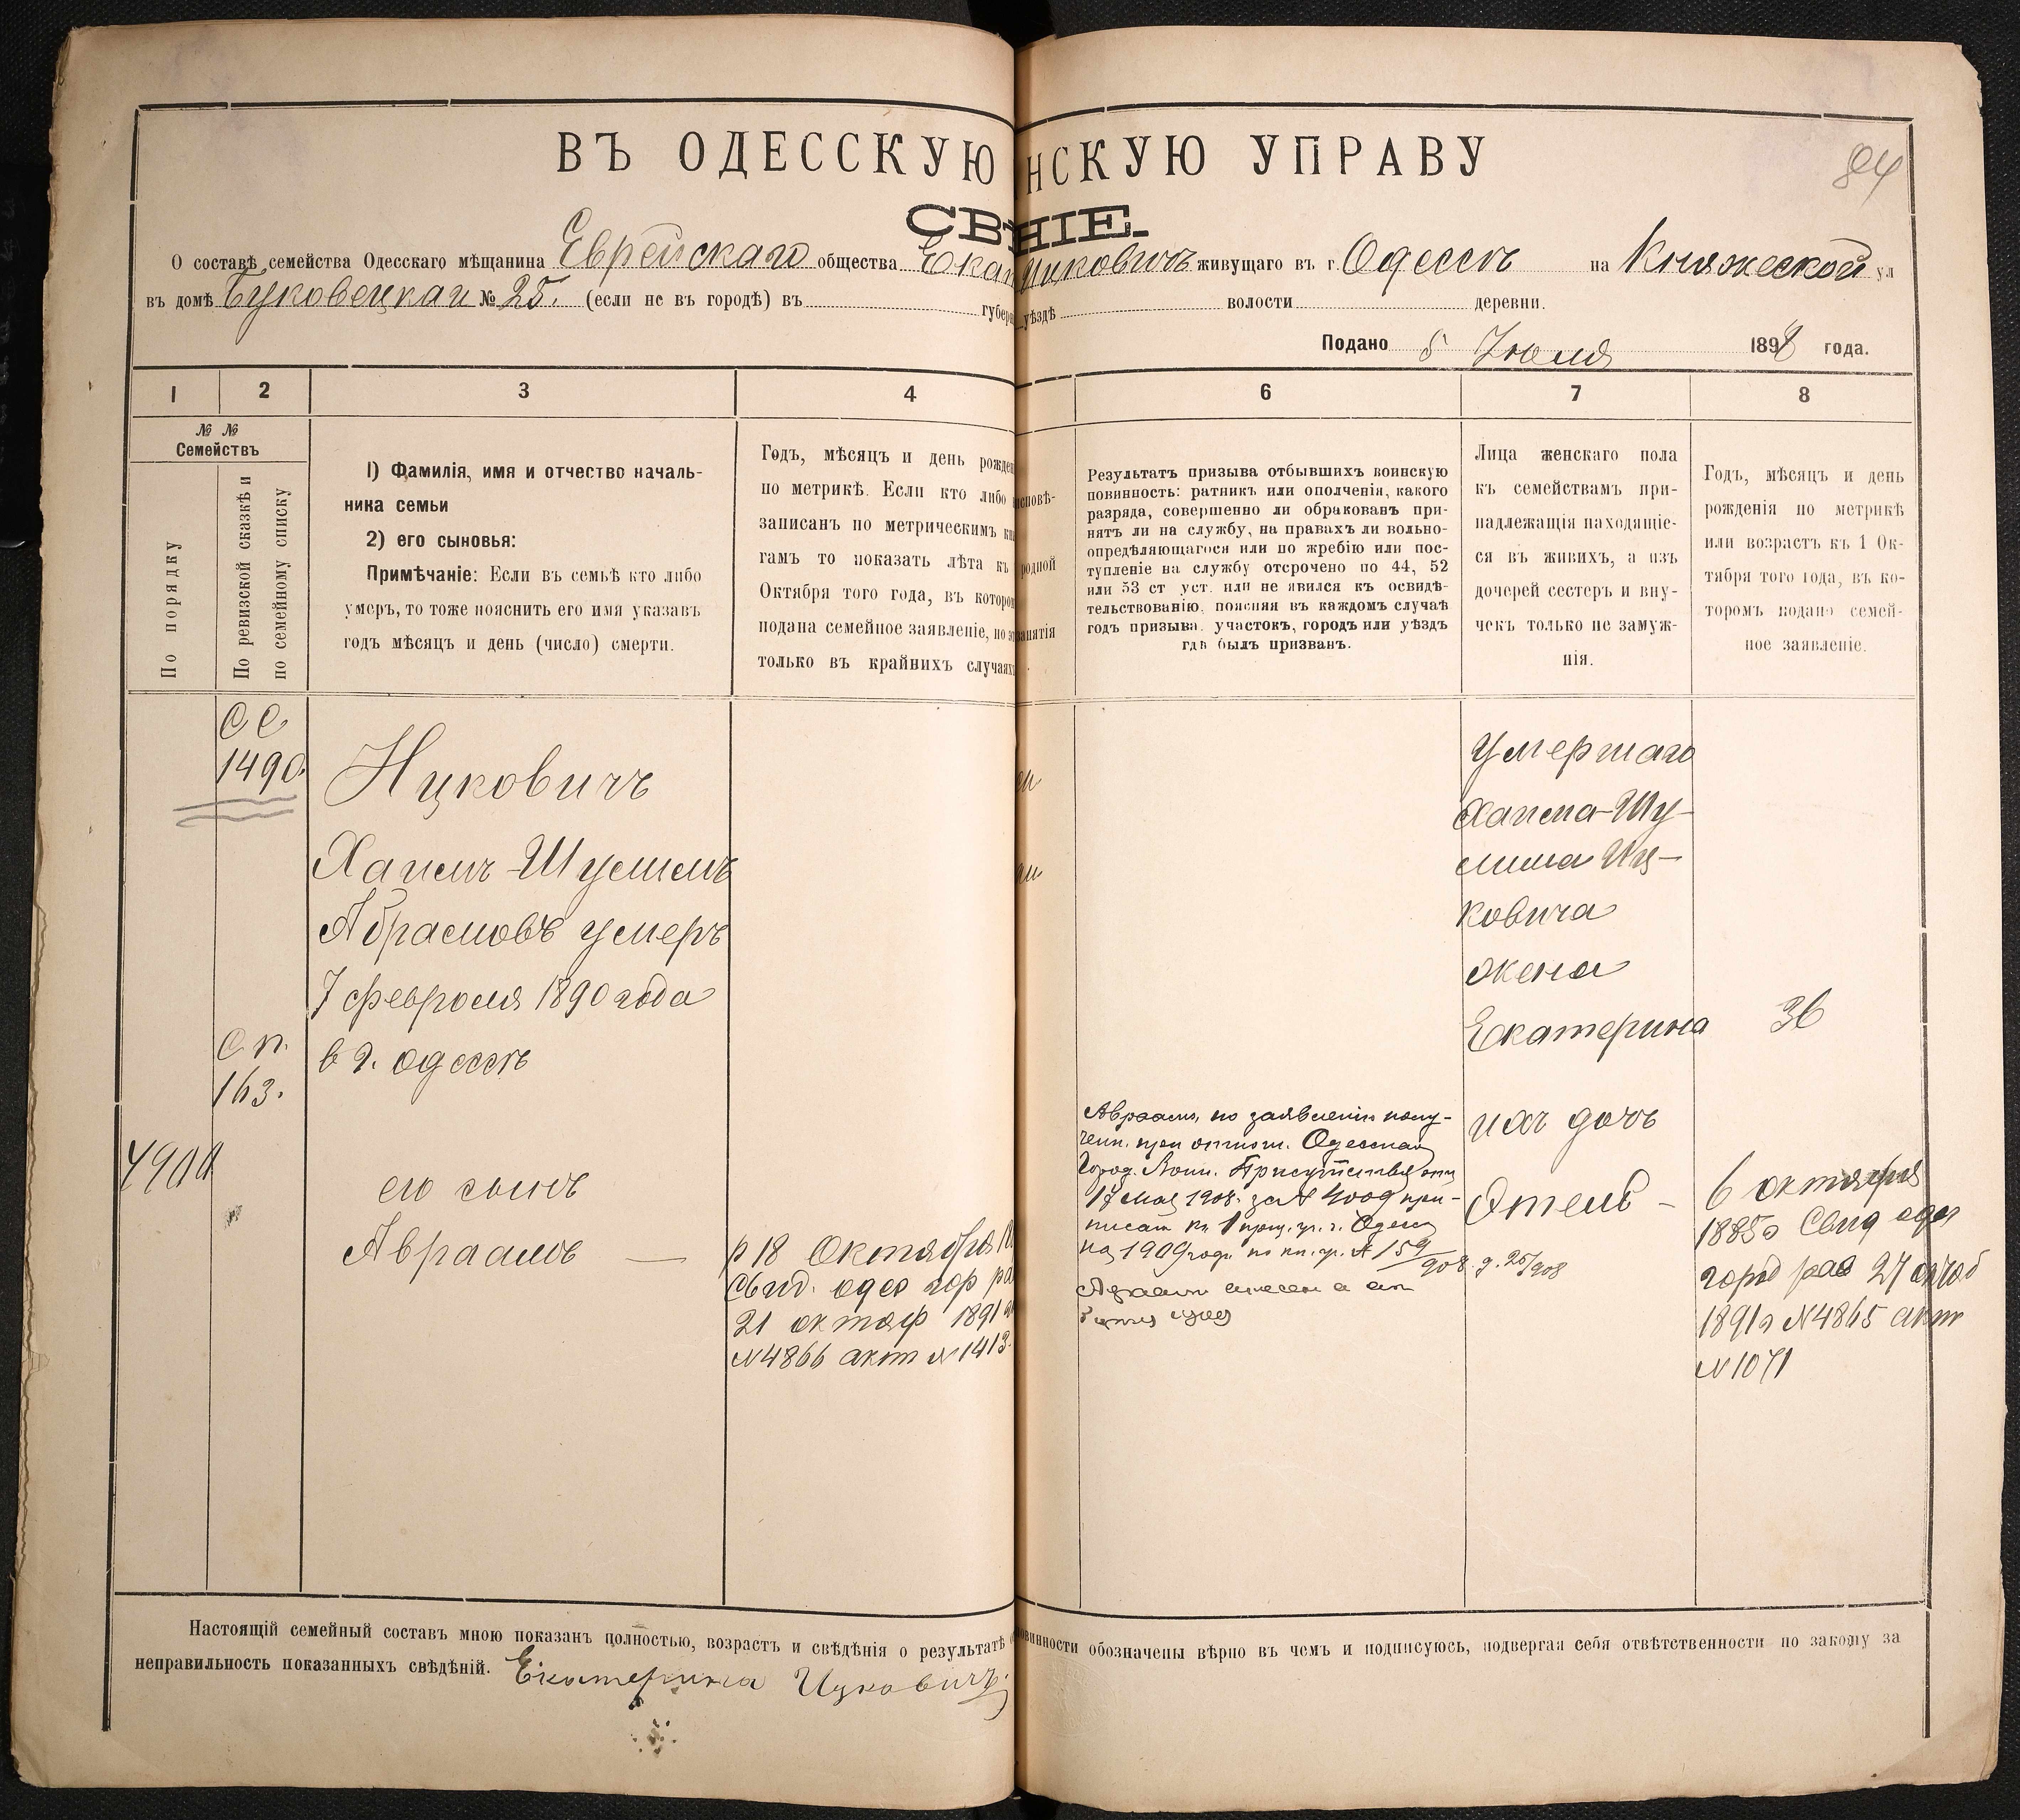 ВЪ ОДЕССКУЮ НСКУЮ УПРАВУ
84
СВѢ НІЕ.
О составѣ семейства Одесскаго мѣщанина Еврейскаго общества Екат Ицковичъ живущаго въ г. Одессѣ на Княжеской ул
въ домѣ Буковецкаи № 25. (если не въ городѣ) въ губерн уѣздѣ волости деревни.
Подано 5 Июля 1898 года.
1 2 3 4 6 7 8
№ №
Семействъ
По порядку
По ревизской сказкѣ и
по семейному списку
1) Фамилія, имя и отчество началь-
ника семьи
2) его сыновья:
Примѣчаніе: Если въ семьѣ кто либо
умеръ, то тоже пояснить его имя указавъ
годъ мѣсяцъ и день (число) смерти.
Годъ, мѣсяцъ и день рожден
по метрикѣ. Если кто либо
записанъ по метрическимъ кни
гамъ то показать лѣта къ
Октября того года, въ котором
подана семейное заявленіе, но э
только въ крайнихъ случаяхъ
исповѣ-
родной
занятія
Результатъ призыва отбывшихъ воинскую
повинность: ратникъ или ополченія, какого
разряда, совершенно ли обракованъ при-
нятъ ли на службу, на правахъ ли вольно-
опредѣляющагося или по жребію или пос-
тупленіе на службу отсрочено по 44, 52
или 53 ст уст. или не явился къ освидѣ-
тельствованію, поясняя въ каждомъ случаѣ
годъ призыва. участокъ, городъ или уѣздъ
гдѣ былъ призванъ.
Лица женскаго пола
къ семействамъ при-
надлежащія находящіе-
ся въ живихъ, а изъ
дочерей сестеръ и вну-
чекъ только не замуж-
нія.
Годъ, мѣсяцъ и день
рожденія по метрикѣ
или возрастъ къ 1 Ок-
тября того года, въ ко-
торомъ подано семей-
ное заявленіе.
СС
1490.
Ицковичъ
Хаимъ-Шулимъ
Абрамовъ умеръ
7 февраля 1890 года
в г. одессѣ
С п.
163.
его сынъ
Авраамъ —
р 18 Октября
Свид. одес гор ра
21 октяб 1891
№4866 акт №1413
Авраамъ, по заявленію полу-
чен. при отнош. Одесскаго
Город. Воин. Присутствія отъ
17 Мая 1908 за № 4009 при-
писан къ 1 приз. уч. г. Одессы
на 1909 годъ по кн. уч. № 159/908. д. 25/908
умершаго
Хаима-Шу-
лима Иц-
ковича
жена
Екатерина 36
ихъ дочь
Этель -
6 октября
1885г Свид одес
город рав 27 октяб
1891г №4865 акт
№1071
Настоящій семейный составъ мною показанъ полностью, возрастъ и свѣдѣнія о результатѣ овинности обозначены вѣрно въ чемъ и подписуюсь, подвергая себя отвѣтственности по закону за
неправильность показанныхъ свѣдѣній. Екатерина Ицковичъ.